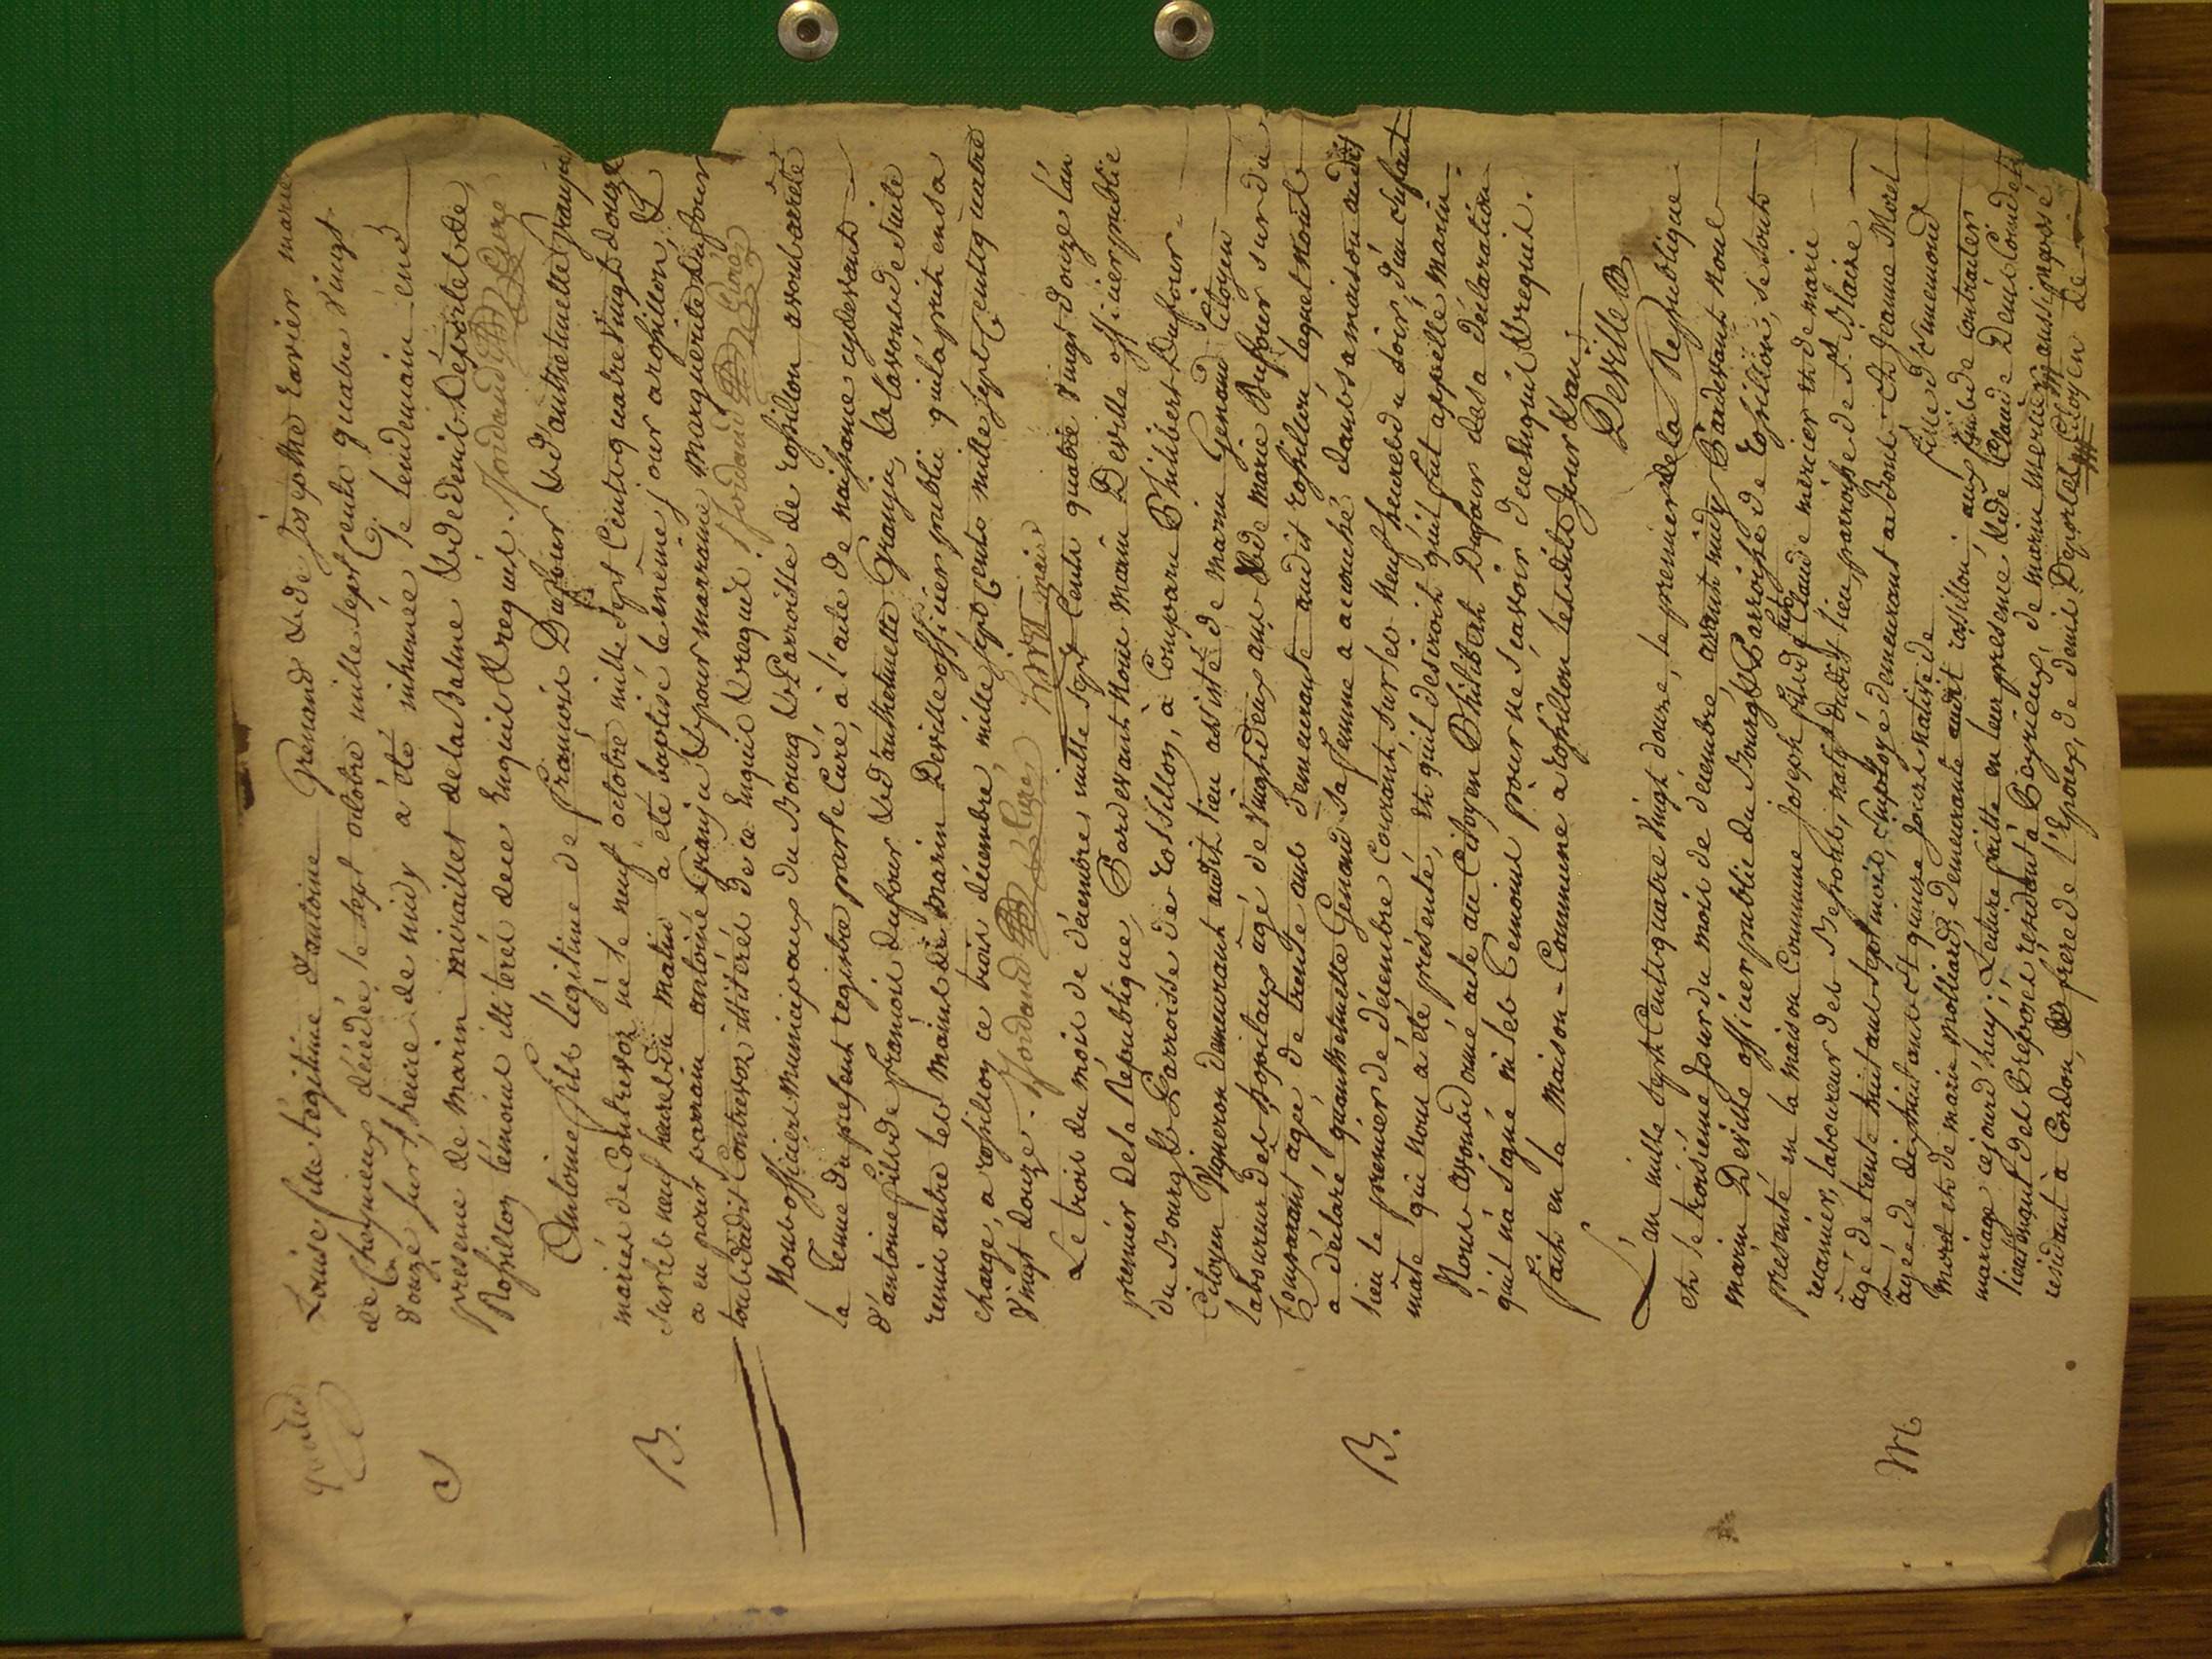 Louise fille légitime d'antoine Grenand & de Josephte Carrier mariés
de Cheynieux décédée le sept octobre mille sept cents quatre vingt
douze sur l'heure de midy a été inhumée le lendemain en
présence de marin miraillet de la Balme & de denis Déporte de
Rossillon témoins illiterés de ce Enquis & requis. Jordand Curé
S
Antoine fils légitime de françois Dufour & d'anthelmette Granju
mariés de Contrevoz né le neuf octobre mille sept cents quatre vingt douze
sur les neuf heures du matin a été baptisé le même jour a rossillon, &
a eu pour parrain antoine Granju & pour marraine marguerite Dufour
tous dudit Contrevoz illiterés de ce Enquis & requis. Jordand Curé
B.
Nous officiers municipaux du Bourg & Parroisse de rossillon avons arrêté
la tenue du present registre par le Curé, à l'acte de naissance cydevant
d'antoine fils de françois dufour & d'anthelmette Granju, & l'avons de suite
remis entre les mains de marin Deville officier public qui l'a prit en sa
charge, a rossillon ce trois décembre, mille sept cents mille sept cents quatre
vingt douze. Jordand Curé maire
Le trois du mois de décembre mille sept cents quatre vingt douze l'an
premier de la République, Pardevant Nous marin Deville officier publie
du Bourg & Parroisse de rossillon, à Comparu Philibert Dufour
Citoyen Vigneron demeurant audit lieu assisté de marin Genoud Citoyen
laboureur des hopitaux agé de vingt deux ans & de marie Dufour sur du
Comparant agée de trente ans demeurante audit rossillon lequel Nous
a déclaré qu'anthelmette Genoud sa femme a accouché dans sa maison audit
lieu le premier de décembre Courant, sur les neuf heures du soir, d'un enfant
male qui Nous a été présenté, et qu'il desiroit qu'il fut appellé marin.
Nous avons donné acte au Citoyen Philibert Dufour de sa déclaration
qu'il n'a signé ni les Temoins pour ne sçavoir de ce enquis & requis.
fait en la maison Commune a rossillon lesdits Jour & an
Deville
B.
L'an mille sept Cents quatre vingt douze, le premier de la République
et le troisième Jour du mois de decembre avant midy Pardevant Nous
marin Deville officier public du Bourg & Parroisse de rossillon, se sont
presenté en la maison Commune Joseph fils de Claude mercier et de marie
récamier, laboureur des hopitaux, natif dudit lieu, parroisse de St. Blaise
agé de trente huit ans sept mois, employé demeurant a Bons et Jeanne Morel
agée de dix huit ans et quinze jours native de fille d'ennemond
morel et de marie molliard, demeurante audit rossillon, aux fins de contracter
mariage ce jourd'huy Lecture faitte en leur presence de Claude Denis Condet
lieutenant des Préposés residant à Peyrieux, de marin mercier aussi préposé
residant à Cordon, frère de l'Epoux, de denis Deporte Citoyen de
M